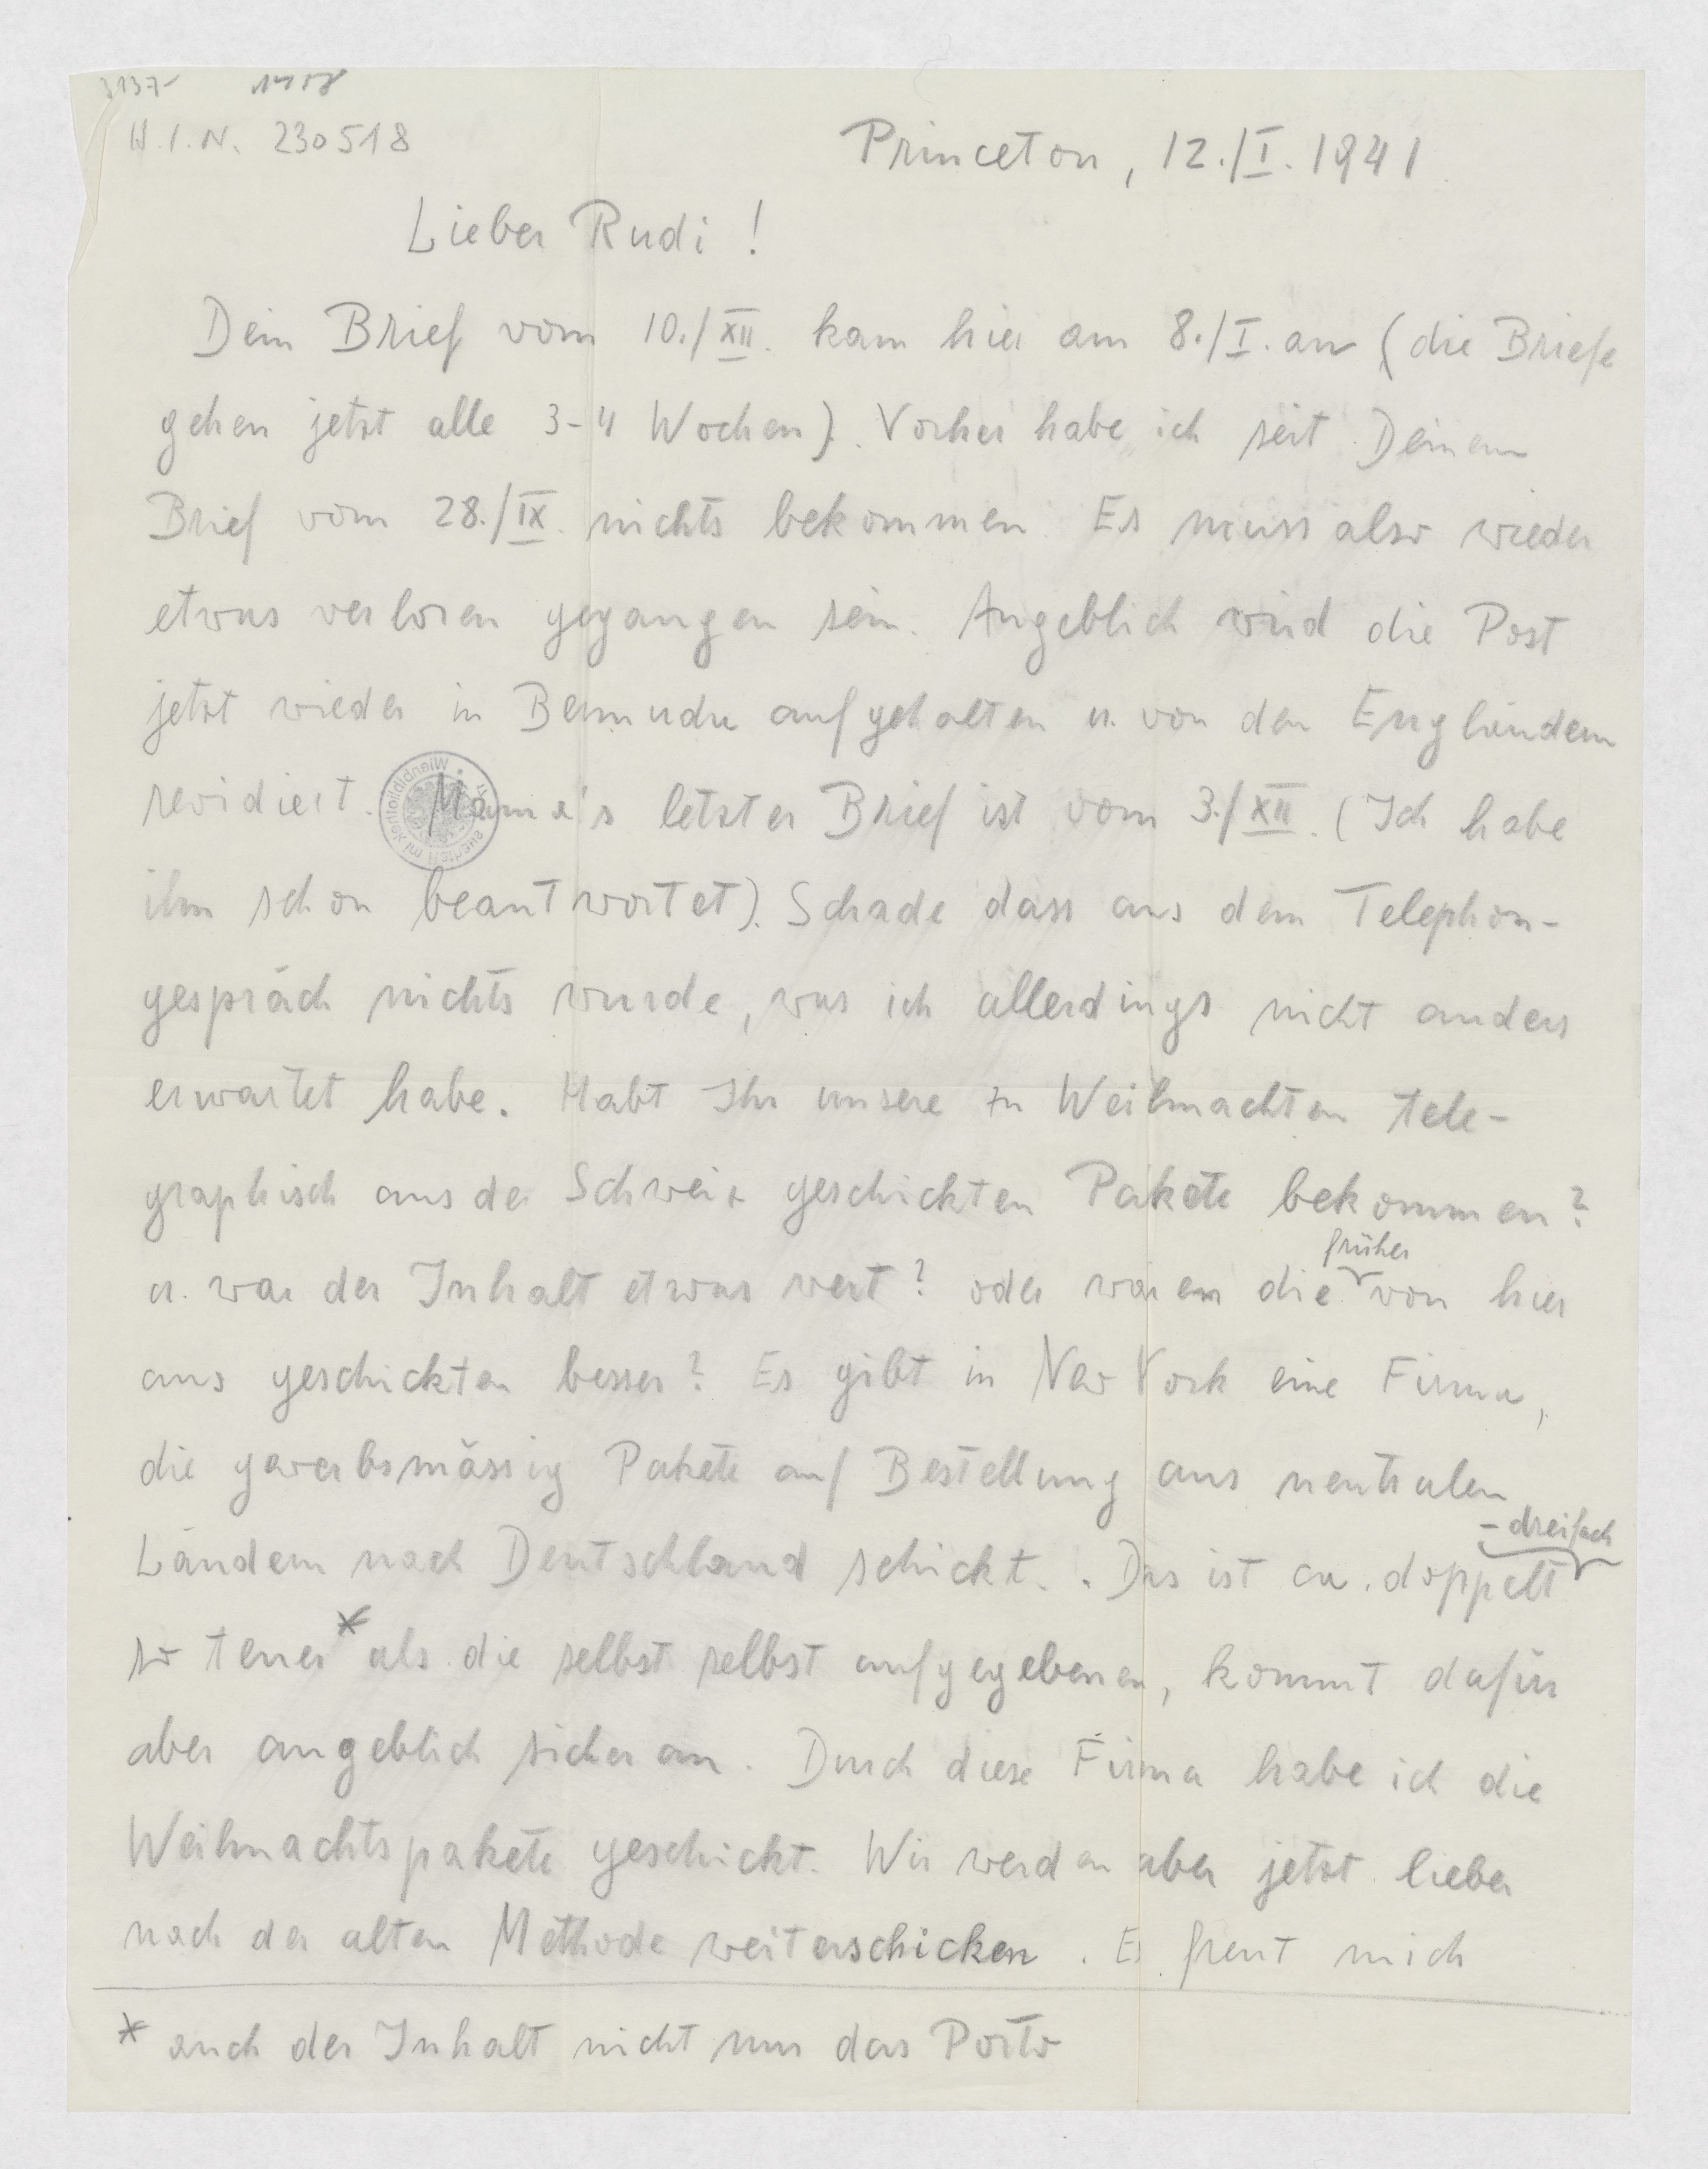 H.I.N. 230518
Princeton, 12./I. 1941
Lieber Rudi !
Dein Brief vom 10./XII. kam hier am 8./I. an (die Briefe
gehen jetzt alle 3-4 Wochen). Vorher habe ich seit Deinem
Brief vom 28./IX. nichts bekommen. Es muss also wieder
etwas verloren gegangen sein. Angeblich wird die Post
jetzt wieder in Bermuda aufgehalten u. von den Engländern
revidiert. Mama's letzter Brief ist vom 3./XII. (Ich habe
ihn schon beantwortet). Schade dass aus dem Telephon-
gespräch nichts wurde, was ich allerdings nicht anders
erwartet habe. Habt Ihr unsere zu Weihnachten tele-
graphisch aus der Schweiz geschickten Pakete bekommen?
früher
u. war der Inhalt etwas wert? oder waren die von hier
aus geschickten besser? Es gibt in New York eine Firma,
die gewerbsmässig Pakete auf Bestellung aus neutralen
- dreifach
Ländern nach Deutschland schickt. . Das ist ca. doppelt
so teuer* als die selbst selbst aufgegebenen, kommt dafür
aber angeblich sicher an. Durch diese Firma habe ich die
Weihnachtspakete geschickt. Wir werden aber jetzt lieber
nach der alten Methode weiterschicken. Es freut mich
* auch der Inhalt nicht nur das Porto